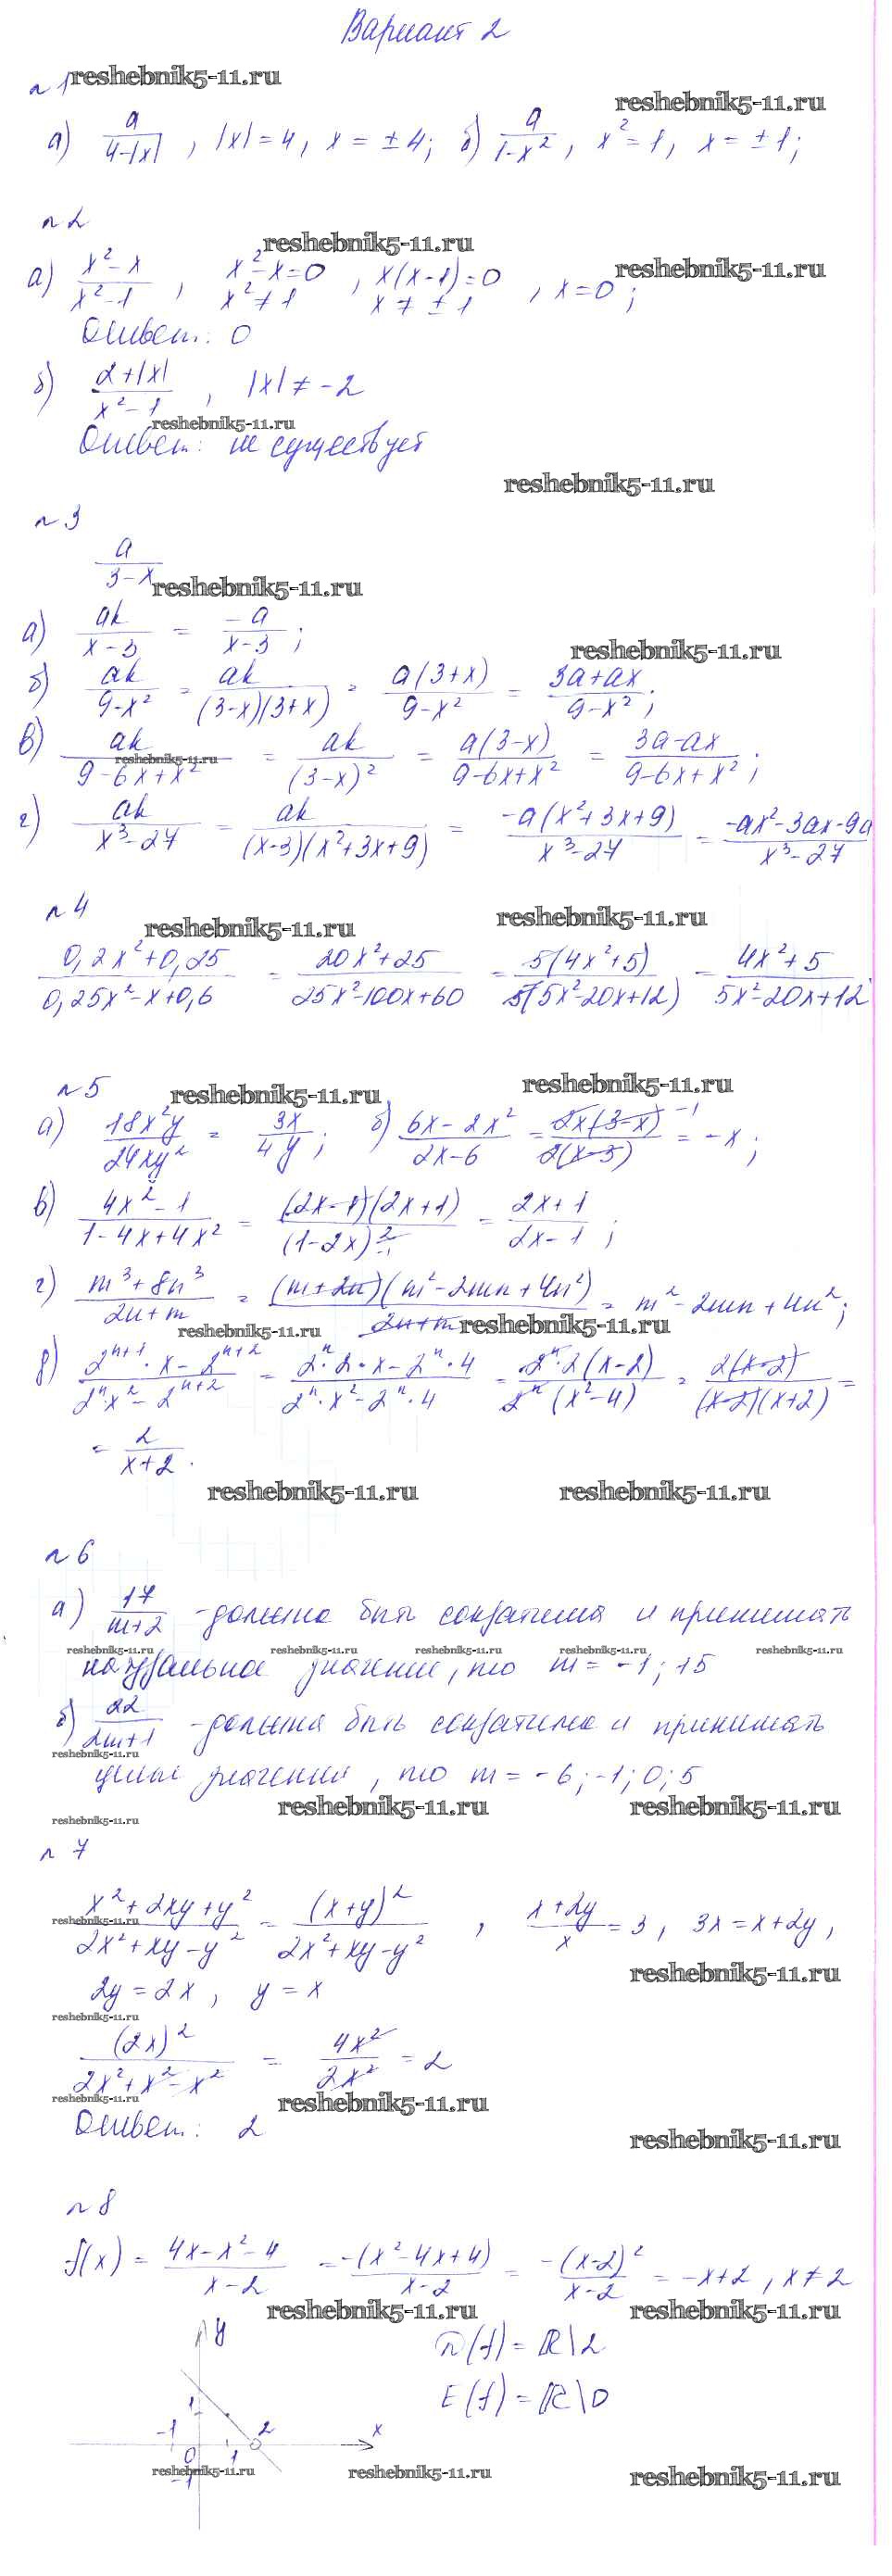 Вариант 2
n 1 reshebnik5-11.ru
reshebnik5-11.ru
а) a/(4-|x|), |x|=4, x=±4; б) a/(1-x²), x²=1, x=±1;
n 2
reshebnik5-11.ru
reshebnik5-11.ru
а) (x²-x)/(x²-1), x²-x=0 x²≠1, x(x-1)=0 x≠±1, x=0;
Ответ: 0
б) (2+|x|)/(x²-1), |x|≠-2
reshebnik5-11.ru
Ответ: не существует
reshebnik5-11.ru
n 3
a/(3-x)
reshebnik5-11.ru
а) ak/(x-3) = -a/(x-3);
reshebnik5-11.ru
б) ak/(9-x²) = ak/((3-x)(3+x)) = a(3+x)/(9-x²) = (3a+ax)/(9-x²);
в) ak/(9-6x+x²) = ak/(3-x)² = a(3-x)/(9-6x+x²) = (3a-ax)/(9-6x+x²);
reshebnik5-11.ru
г) ak/(x³-27) = ak/((x-3)(x²+3x+9)) = -a(x²+3x+9)/(x³-27) = (-ax²-3ax-9a)/(x³-27)
n 4
reshebnik5-11.ru reshebnik5-11.ru
(0,2x²+0,25)/(0,25x²-x+0,6) = (20x²+25)/(25x²-100x+60) = 5(4x²+5)/(5(5x²-20x+12)) = (4x²+5)/(5x²-20x+12)
n 5
reshebnik5-11.ru reshebnik5-11.ru
а) 18x²y/(24xy²) = 3x/(4y); б) (6x-2x²)/(2x-6) = 2x(3-x)/(2(x-3)) -1 = -x;
в) (4x²-1)/(1-4x+4x²) = (2x-1)(2x+1)/(1-2x)² = (2x+1)/(2x-1);
г) (m³+8n³)/(2n+m) = (m+2n)(m²-2mn+4n²)/(2n+m) = m²-2mn+4n²;
reshebnik5-11.ru reshebnik5-11.ru
д) (2ⁿ⁺¹·x-2ⁿ⁺²)/(2ⁿx²-2ⁿ⁺²) = (2ⁿ·2·x-2ⁿ·4)/(2ⁿ·x²-2ⁿ·4) = 2ⁿ·2(x-2)/(2ⁿ(x²-4)) = 2(x-2)/((x-2)(x+2)) =
= 2/(x+2).
reshebnik5-11.ru reshebnik5-11.ru
n 6
а) 17/(m+2) - должна быть сократима и принимать
reshebnik5-11.ru reshebnik5-11.ru reshebnik5-11.ru reshebnik5-11.ru reshebnik5-11.ru
натуральное значение, то m=-1; 15
б) 22/(2m+1) - должна быть сократима и принимать
reshebnik5-11.ru
целые значения, то m=-6;-1;0;5
reshebnik5-11.ru reshebnik5-11.ru
reshebnik5-11.ru
n 7
(x²+2xy+y²)/(2x²+xy-y²) = (x+y)²/(2x²+xy-y²), (x+2y)/x=3, 3x=x+2y,
reshebnik5-11.ru
reshebnik5-11.ru
2y=2x, y=x
reshebnik5-11.ru
(2x)²/(2x²+x²-x²) = 4x²/2x² = 2
reshebnik5-11.ru reshebnik5-11.ru
Ответ: 2
reshebnik5-11.ru
n 8
f(x) = (4x-x²-4)/(x-2) = -(x²-4x+4)/(x-2) = -(x-2)²/(x-2) = -x+2, x≠2
reshebnik5-11.ru reshebnik5-11.ru
y
D(f)=ℝ\2
E(f)=ℝ\0
1
-1 0 1 2 x
-1
reshebnik5-11.ru reshebnik5-11.ru reshebnik5-11.ru